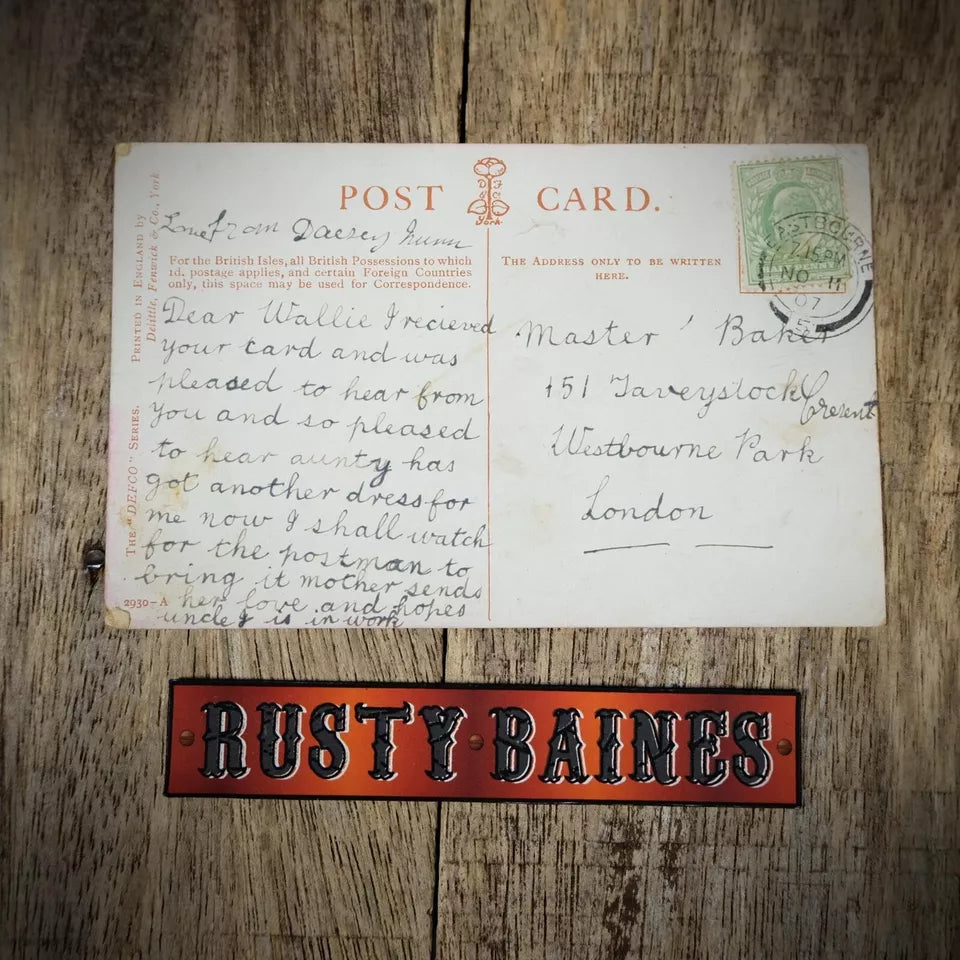 POST CARD.
D F & C
York
PRINTED IN ENGLAND by
Delittle, Fenwick & Co., York
THE "DEFCO" SERIES.
2930–A
Love from Daesey Nunn
For the British Isles, all British Possessions to which
1d. postage applies, and certain Foreign Countries
only, this space may be used for Correspondence.
Dear Wallie I recieved
your card and was
pleased to hear from
you and so pleased
to hear aunty has
got another dress for
me now I shall watch
for the postman to
bring it mother sends
her love and hopes
uncle J is in work
THE ADDRESS ONLY TO BE WRITTEN
HERE.
EASTBOURNE
7.15PM
NO 11
07
Master Baker
151 Taveystock Cresent
Westbourne Park
London
RUSTY BAINES